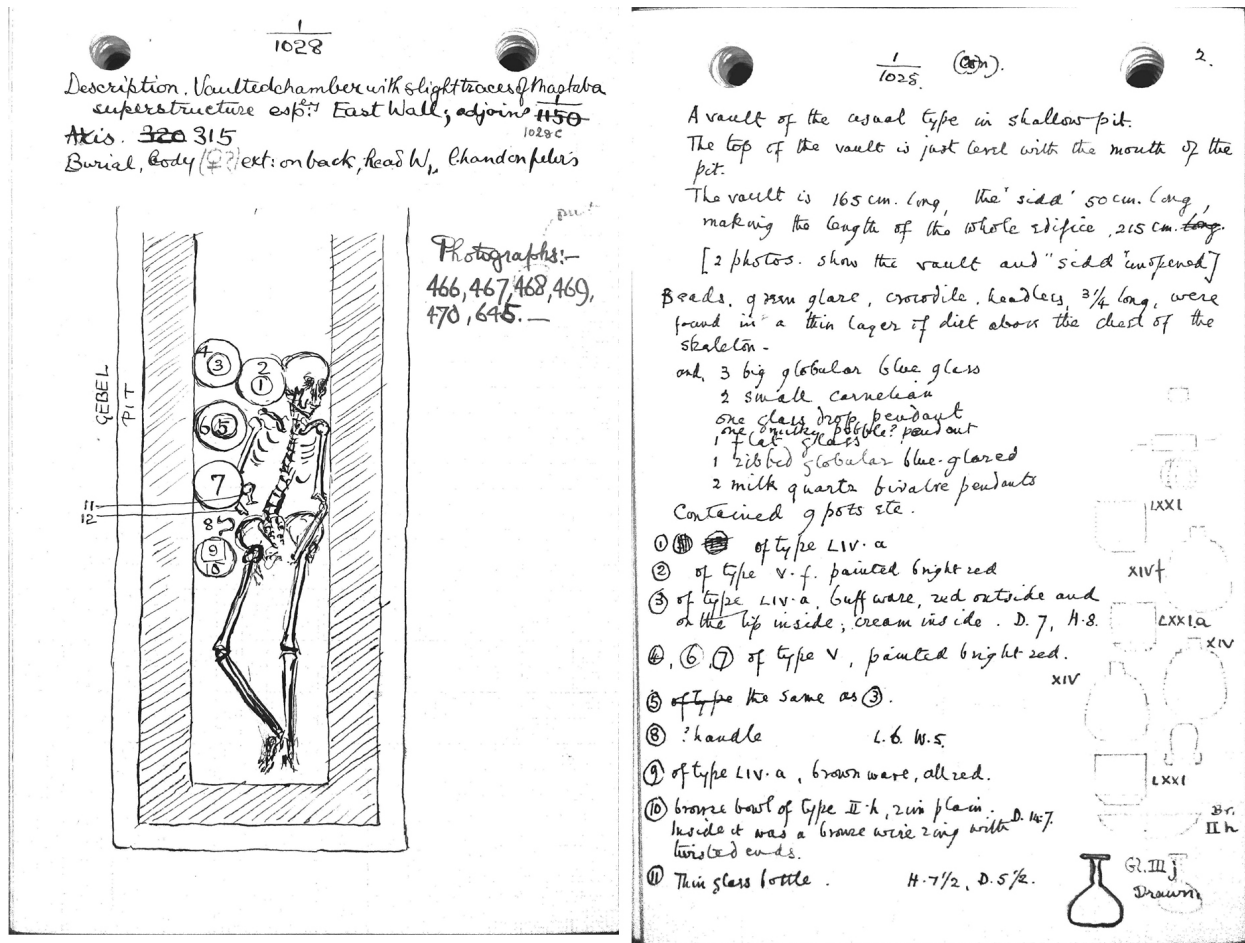 1
1028
Description. Vaulted chamber with slight traces of Mastaba
superstructure esp:ly East Wall; adjoins 1 1150
1028c
Axis. 320 315
Burial, body (♀?) ext: on back, head W,, hand on pelvis
Photographs:-
466, 467, 468, 469,
470, 645. —
GEBEL
PIT
4 3 2 1
6 5
7
11
12
8
9
10
1
1028. (con). 2.
A vault of the usual type in shallow pit.
The top of the vault is just level with the mouth of the
pit.
The vault is 165 cm. long, the "sidd" 50 cm. long,
making the length of the whole edifice, 215 cm. long.
[2 photos. show the vault and "sidd" unopened]
Beads, green glaze, crocodile, headless, 3¼ long, were
found in a thin layer of dirt above the chest of the
skeleton -
and, 3 big globular blue glass
2 small carnelian
one glass drop pendant
one milky pebble? pendant
1 flat glass
1 ribbed globular blue-glazed
2 milk quartz bivalve pendants
Contained 9 pots etc.
LXXI
① of type LIV.a
② of type V.f. painted bright red
XIVf
③ of type LIV.a, buff ware, red outside and
on the lip inside; cream inside. D. 7, H. 8.
LXXI.a
XIV
④, ⑥, ⑦ of type V, painted bright red.
XIV
⑤ of type the same as ③.
⑧ ? handle L. 6. W. 5.
⑨ of type LIV.a, brown ware, all red.
LXXI
⑩ bronze bowl of type II.h, rim plain. D. 14.7.
Inside it was a bronze wire ring with
twisted ends.
Br.
II h
⑪ Thin glass bottle. H. 7 1/2, D. 5 1/2.
Gl. III j
Drawn